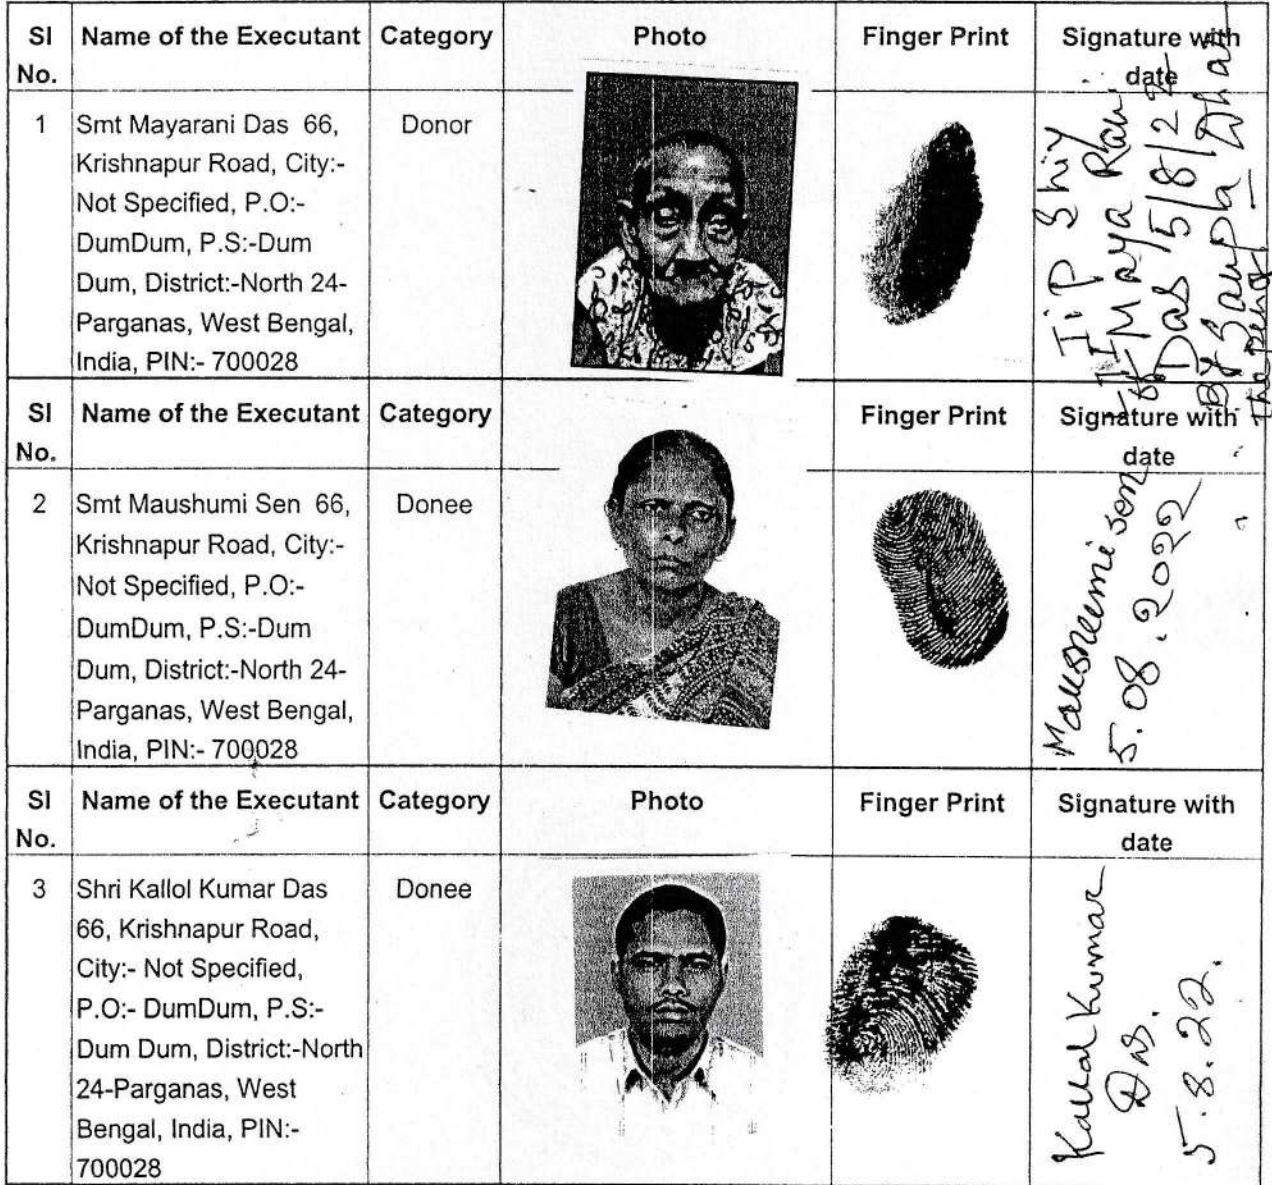 Sl No. Name of the Executant Category Photo Finger Print Signature with date
1 Smt Mayarani Das 66, Donor
Krishnapur Road, City:-
Not Specified, P.O:-
DumDum, P.S:-Dum
Dum, District:-North 24-
Parganas, West Bengal,
India, PIN:- 700028
Maya Rani
Das 5/8/22
By
the pen of
Sl No. Name of the Executant Category Finger Print Signature with date
2 Smt Maushumi Sen 66, Donee
Krishnapur Road, City:-
Not Specified, P.O:-
DumDum, P.S:-Dum
Dum, District:-North 24-
Parganas, West Bengal,
India, PIN:- 700028
Maushumi sen
5.08.2022
Sl No. Name of the Executant Category Photo Finger Print Signature with date
3 Shri Kallol Kumar Das Donee
66, Krishnapur Road,
City:- Not Specified,
P.O:- DumDum, P.S:-
Dum Dum, District:-North
24-Parganas, West
Bengal, India, PIN:-
700028
Kallol Kumar
Das.
5.8.22.